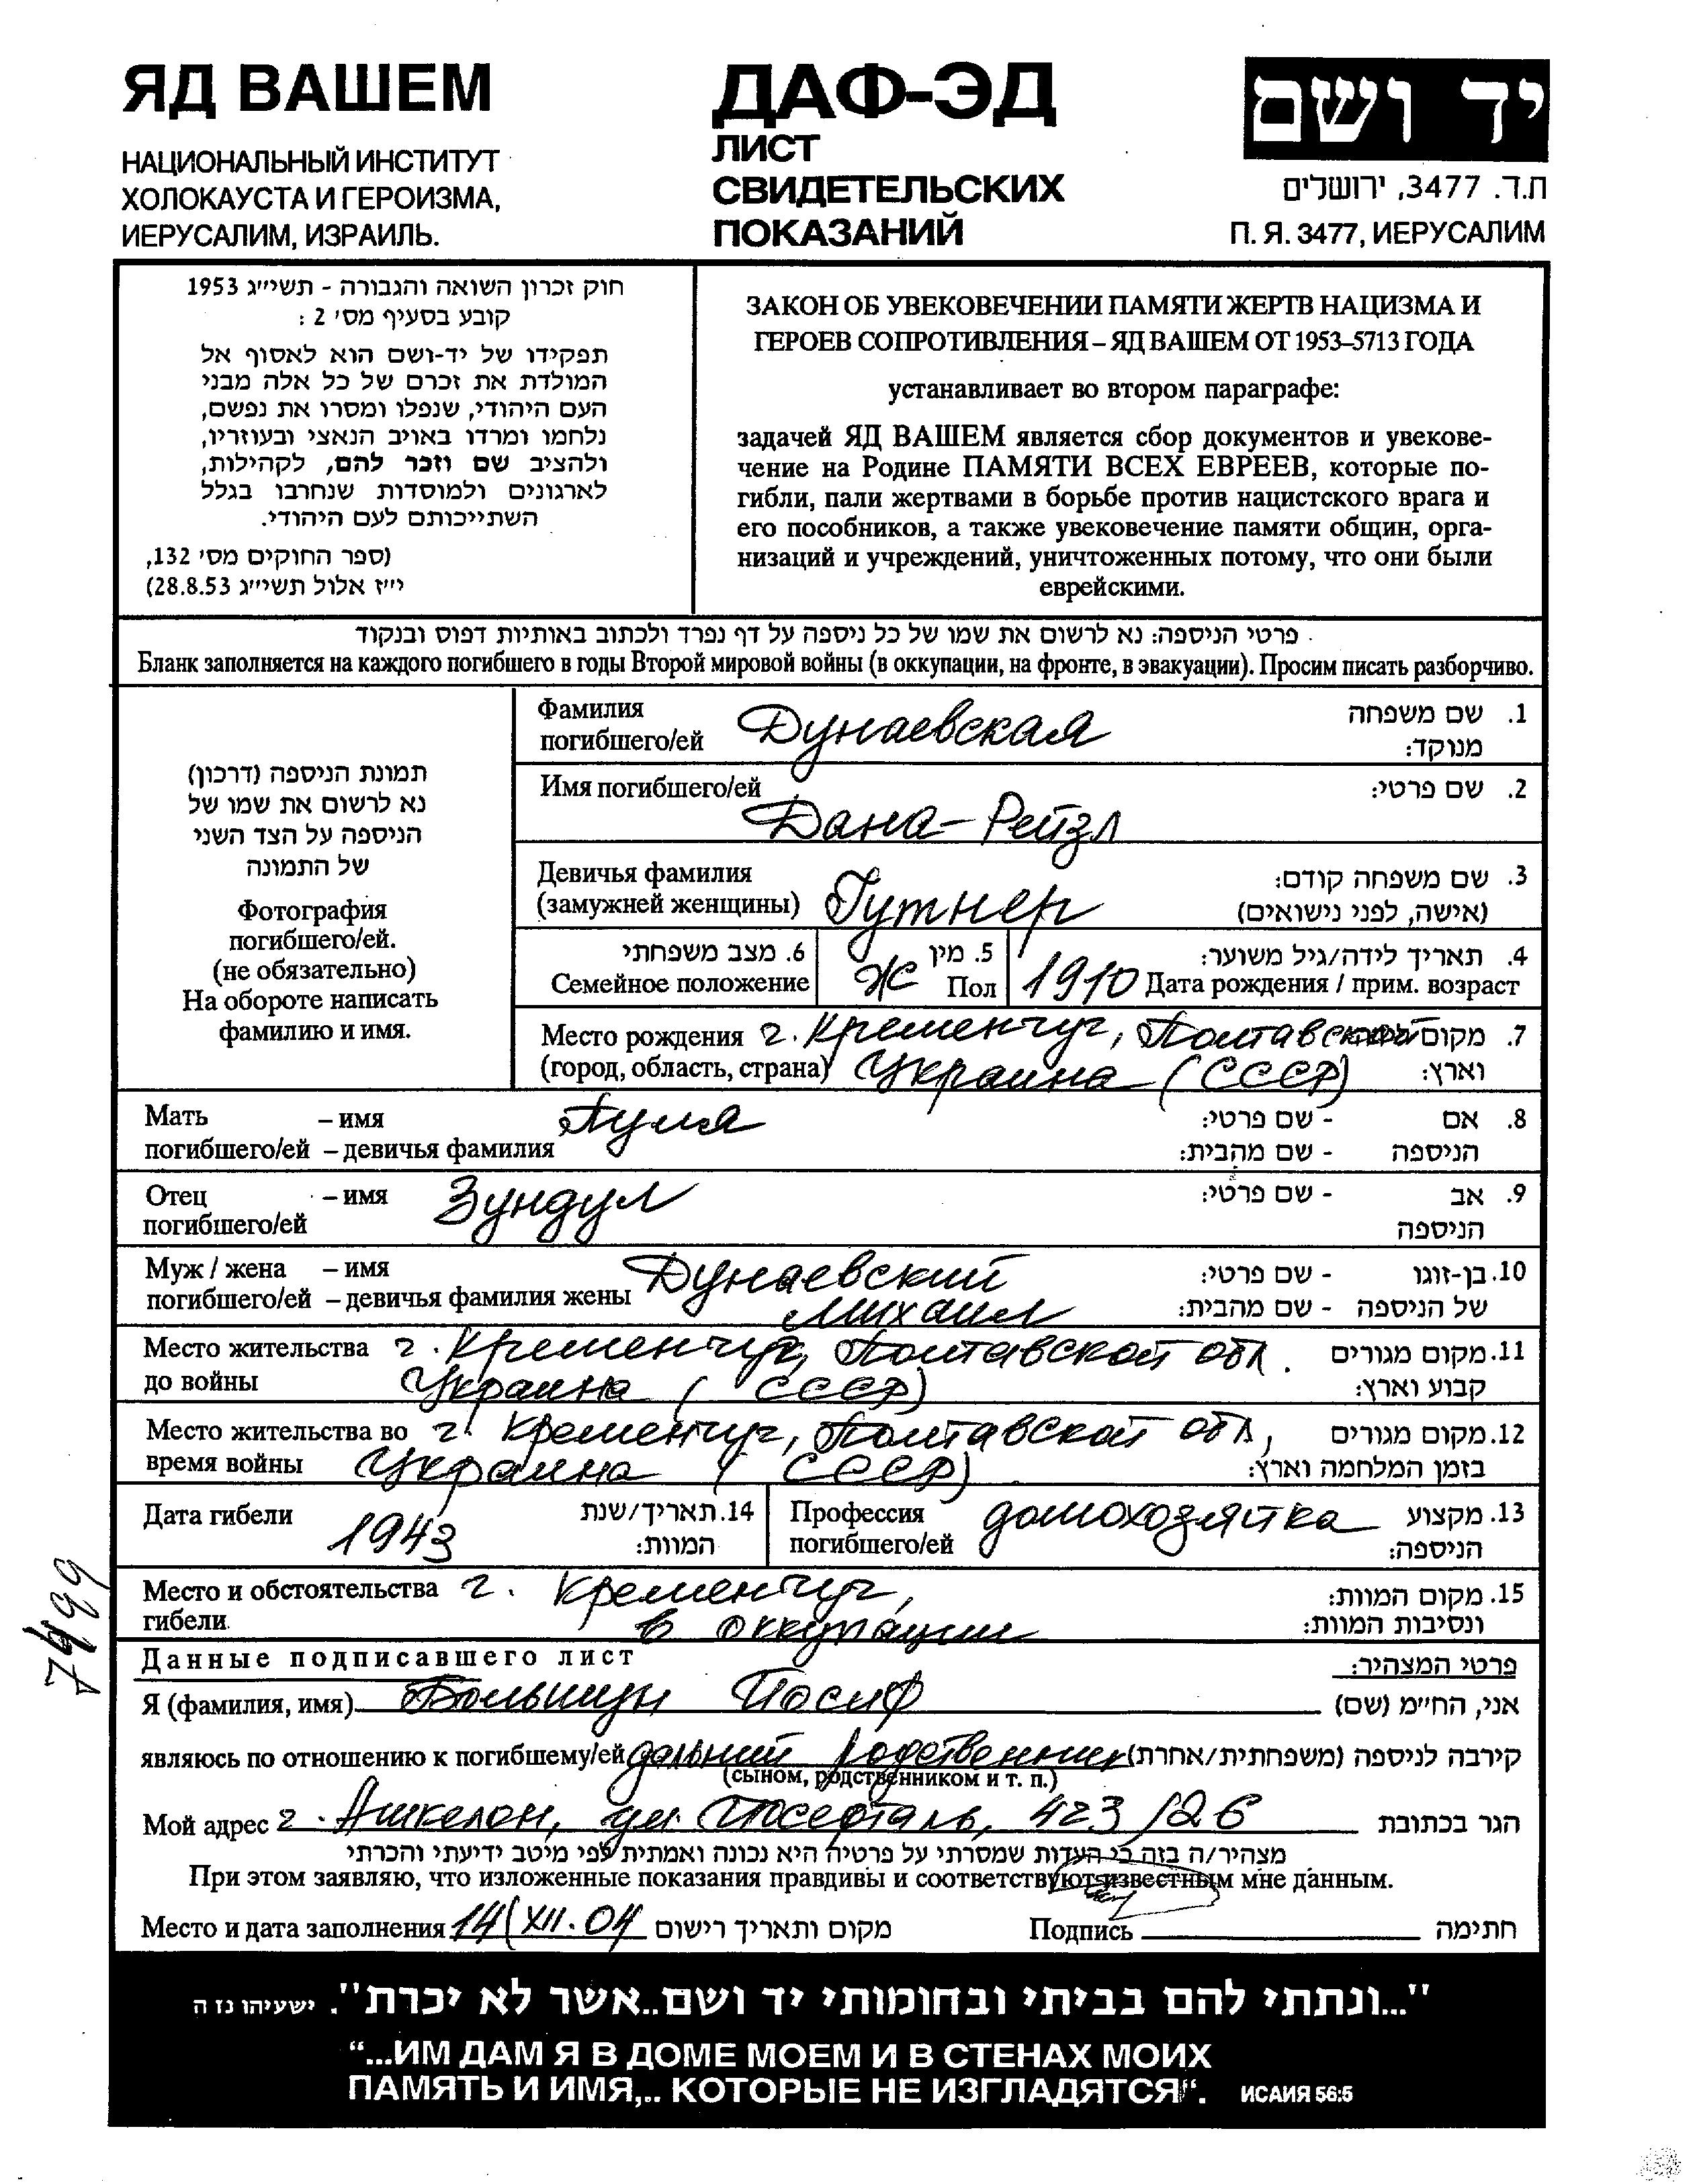 ЯД ВАШЕМ
НАЦИОНАЛЬНЫЙ ИНСТИТУТ
ХОЛОКАУСТА И ГЕРОИЗМА,
ИЕРУСАЛИМ, ИЗРАИЛЬ.
ДАФ-ЭД
ЛИСТ
СВИДЕТЕЛЬСКИХ
ПОКАЗАНИЙ
יד ושם
ת.ד. 3477, ירושלים
П. Я. 3477, ИЕРУСАЛИМ
חוק זכרון השואה והגבורה - תשי״ג 1953
קובע בסעיף מס׳ 2 :
תפקידו של יד-ושם הוא לאסוף אל
המולדת את זכרם של כל אלה מבני
העם היהודי, שנפלו ומסרו את נפשם,
נלחמו ומרדו באויב הנאצי ובעוזריו,
ולהציב שם וזכר להם, לקהילות,
לארגונים ולמוסדות שנחרבו בגלל
השתייכותם לעם היהודי.
(ספר החוקים מס׳ 132,
י״ז אלול תשי״ג 28.8.53)
ЗАКОН ОБ УВЕКОВЕЧЕНИИ ПАМЯТИ ЖЕРТВ НАЦИЗМА И
ГЕРОЕВ СОПРОТИВЛЕНИЯ – ЯД ВАШЕМ ОТ 1953–5713 ГОДА
устанавливает во втором параграфе:
задачей ЯД ВАШЕМ является сбор документов и увекове-
чение на Родине ПАМЯТИ ВСЕХ ЕВРЕЕВ, которые по-
гибли, пали жертвами в борьбе против нацистского врага и
его пособников, а также увековечение памяти общин, орга-
низаций и учреждений, уничтоженных потому, что они были
еврейскими.
פרטי הניספה: נא לרשום את שמו של כל ניספה על דף נפרד ולכתוב באותיות דפוס ובנקוד
Бланк заполняется на каждого погибшего в годы Второй мировой войны (в оккупации, на фронте, в эвакуации). Просим писать разборчиво.
תמונת הניספה (דרכון)
נא לרשום את שמו של
הניספה על הצד השני
של התמונה
Фотография
погибшего/ей.
(не обязательно)
На обороте написать
фамилию и имя.
Фамилия Дунаевская 1. שם משפחה
погибшего/ей מנוקד:
Имя погибшего/ей 2. שם פרטי:
Дана-Рейзл
Девичья фамилия 3. שם משפחה קודם:
(замужней женщины) Гутнер (אישה, לפני נישואים)
6. מצב משפחתי 5. מין 4. תאריך לידה/גיל משוער:
Семейное положение Ж Пол 1910 Дата рождения / прим. возраст
Место рождения г. Кременчуг, Полтавской 7. מקום
(город, область, страна) Украина (СССР) וארץ:
Мать – имя Пуля 8. אם - שם פרטי:
погибшего/ей – девичья фамилия הניספה - שם מהבית:
Отец – имя Зундул 9. אב - שם פרטי:
погибшего/ей הניספה
Муж / жена – имя Дунаевский 10. בן-זוגו - שם פרטי:
погибшего/ей – девичья фамилия жены Михаил של הניספה - שם מהבית:
Место жительства г. Кременчуг, Полтавской обл. 11. מקום מגורים
до войны Украина (СССР) קבוע וארץ:
Место жительства во г. Кременчуг, Полтавской обл, 12. מקום מגורים
время войны Украина (СССР) בזמן המלחמה וארץ:
Дата гибели 1943 14. תאריך/שנת
המוות:
Профессия домохозяйка 13. מקצוע
погибшего/ей הניספה:
Место и обстоятельства г. Кременчуг, 15. מקום המוות:
гибели в оккупации ונסיבות המוות:
7499
Данные подписавшего лист פרטי המצהיר:
Я (фамилия, имя) Большун Иосиф אני, הח״מ (שם)
являюсь по отношению к погибшему/ей дальний родственник קירבה לניספה (משפחתית/אחרת)
(сыном, родственником и т. п.)
Мой адрес г. Ашкелон, ул. 423/26 הגר בכתובת
מצהיר/ה בזה כי העדות שמסרתי על פרטיה היא נכונה ואמתית לפי מיטב ידיעתי והכרתי
При этом заявляю, что изложенные показания правдивы и соответствуют известным мне данным.
Место и дата заполнения 14/XII.04 מקום ותאריך רישום Подпись חתימה
"...ונתתי להם בביתי ובחומותי יד ושם..אשר לא יכרת". ישעיהו נז ה
“...ИМ ДАМ Я В ДОМЕ МОЕМ И В СТЕНАХ МОИХ
ПАМЯТЬ И ИМЯ,.. КОТОРЫЕ НЕ ИЗГЛАДЯТСЯ“. ИСАИЯ 56:5